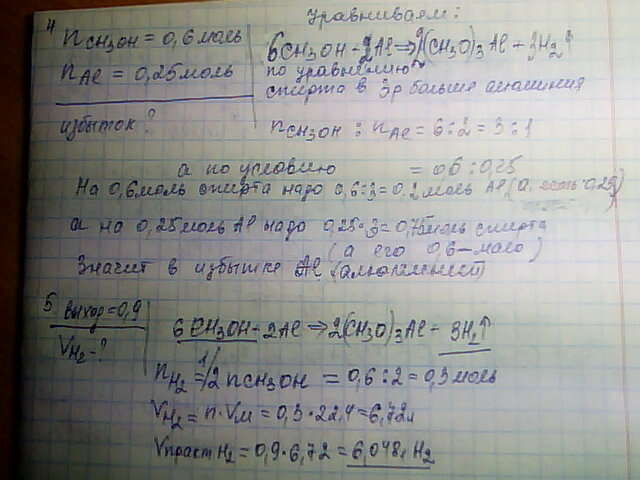 Уравниваем:
4 nCH3OH = 0,6 моль
6CH3OH + 2Al => 2(CH3O)3Al + 3H2↑
nAl = 0,25 моль
по уравнению
спирта в 3р больше алюминия
избыток?
nCH3OH : nAl = 6:2 = 3:1
а по условию = 0,6 : 0,25
На 0,6 моль спирта надо 0,6:3 = 0,2 моль Al (а есть 0,25)
а на 0,25 моль Al надо 0,25·3 = 0,75 моль спирта
(а его 0,6 - мало)
Значит в избытке Al (алюминий)
5 выход = 0,9
VH2 - ?
6CH3OH + 2Al => 2(CH3O)3Al + 3H2↑
nH2 = 1/2 nCH3OH = 0,6 : 2 = 0,3 моль
VH2 = n·Vм = 0,3·22,4 = 6,72л
Vпракт H2 = 0,9·6,72 = 6,048л H2